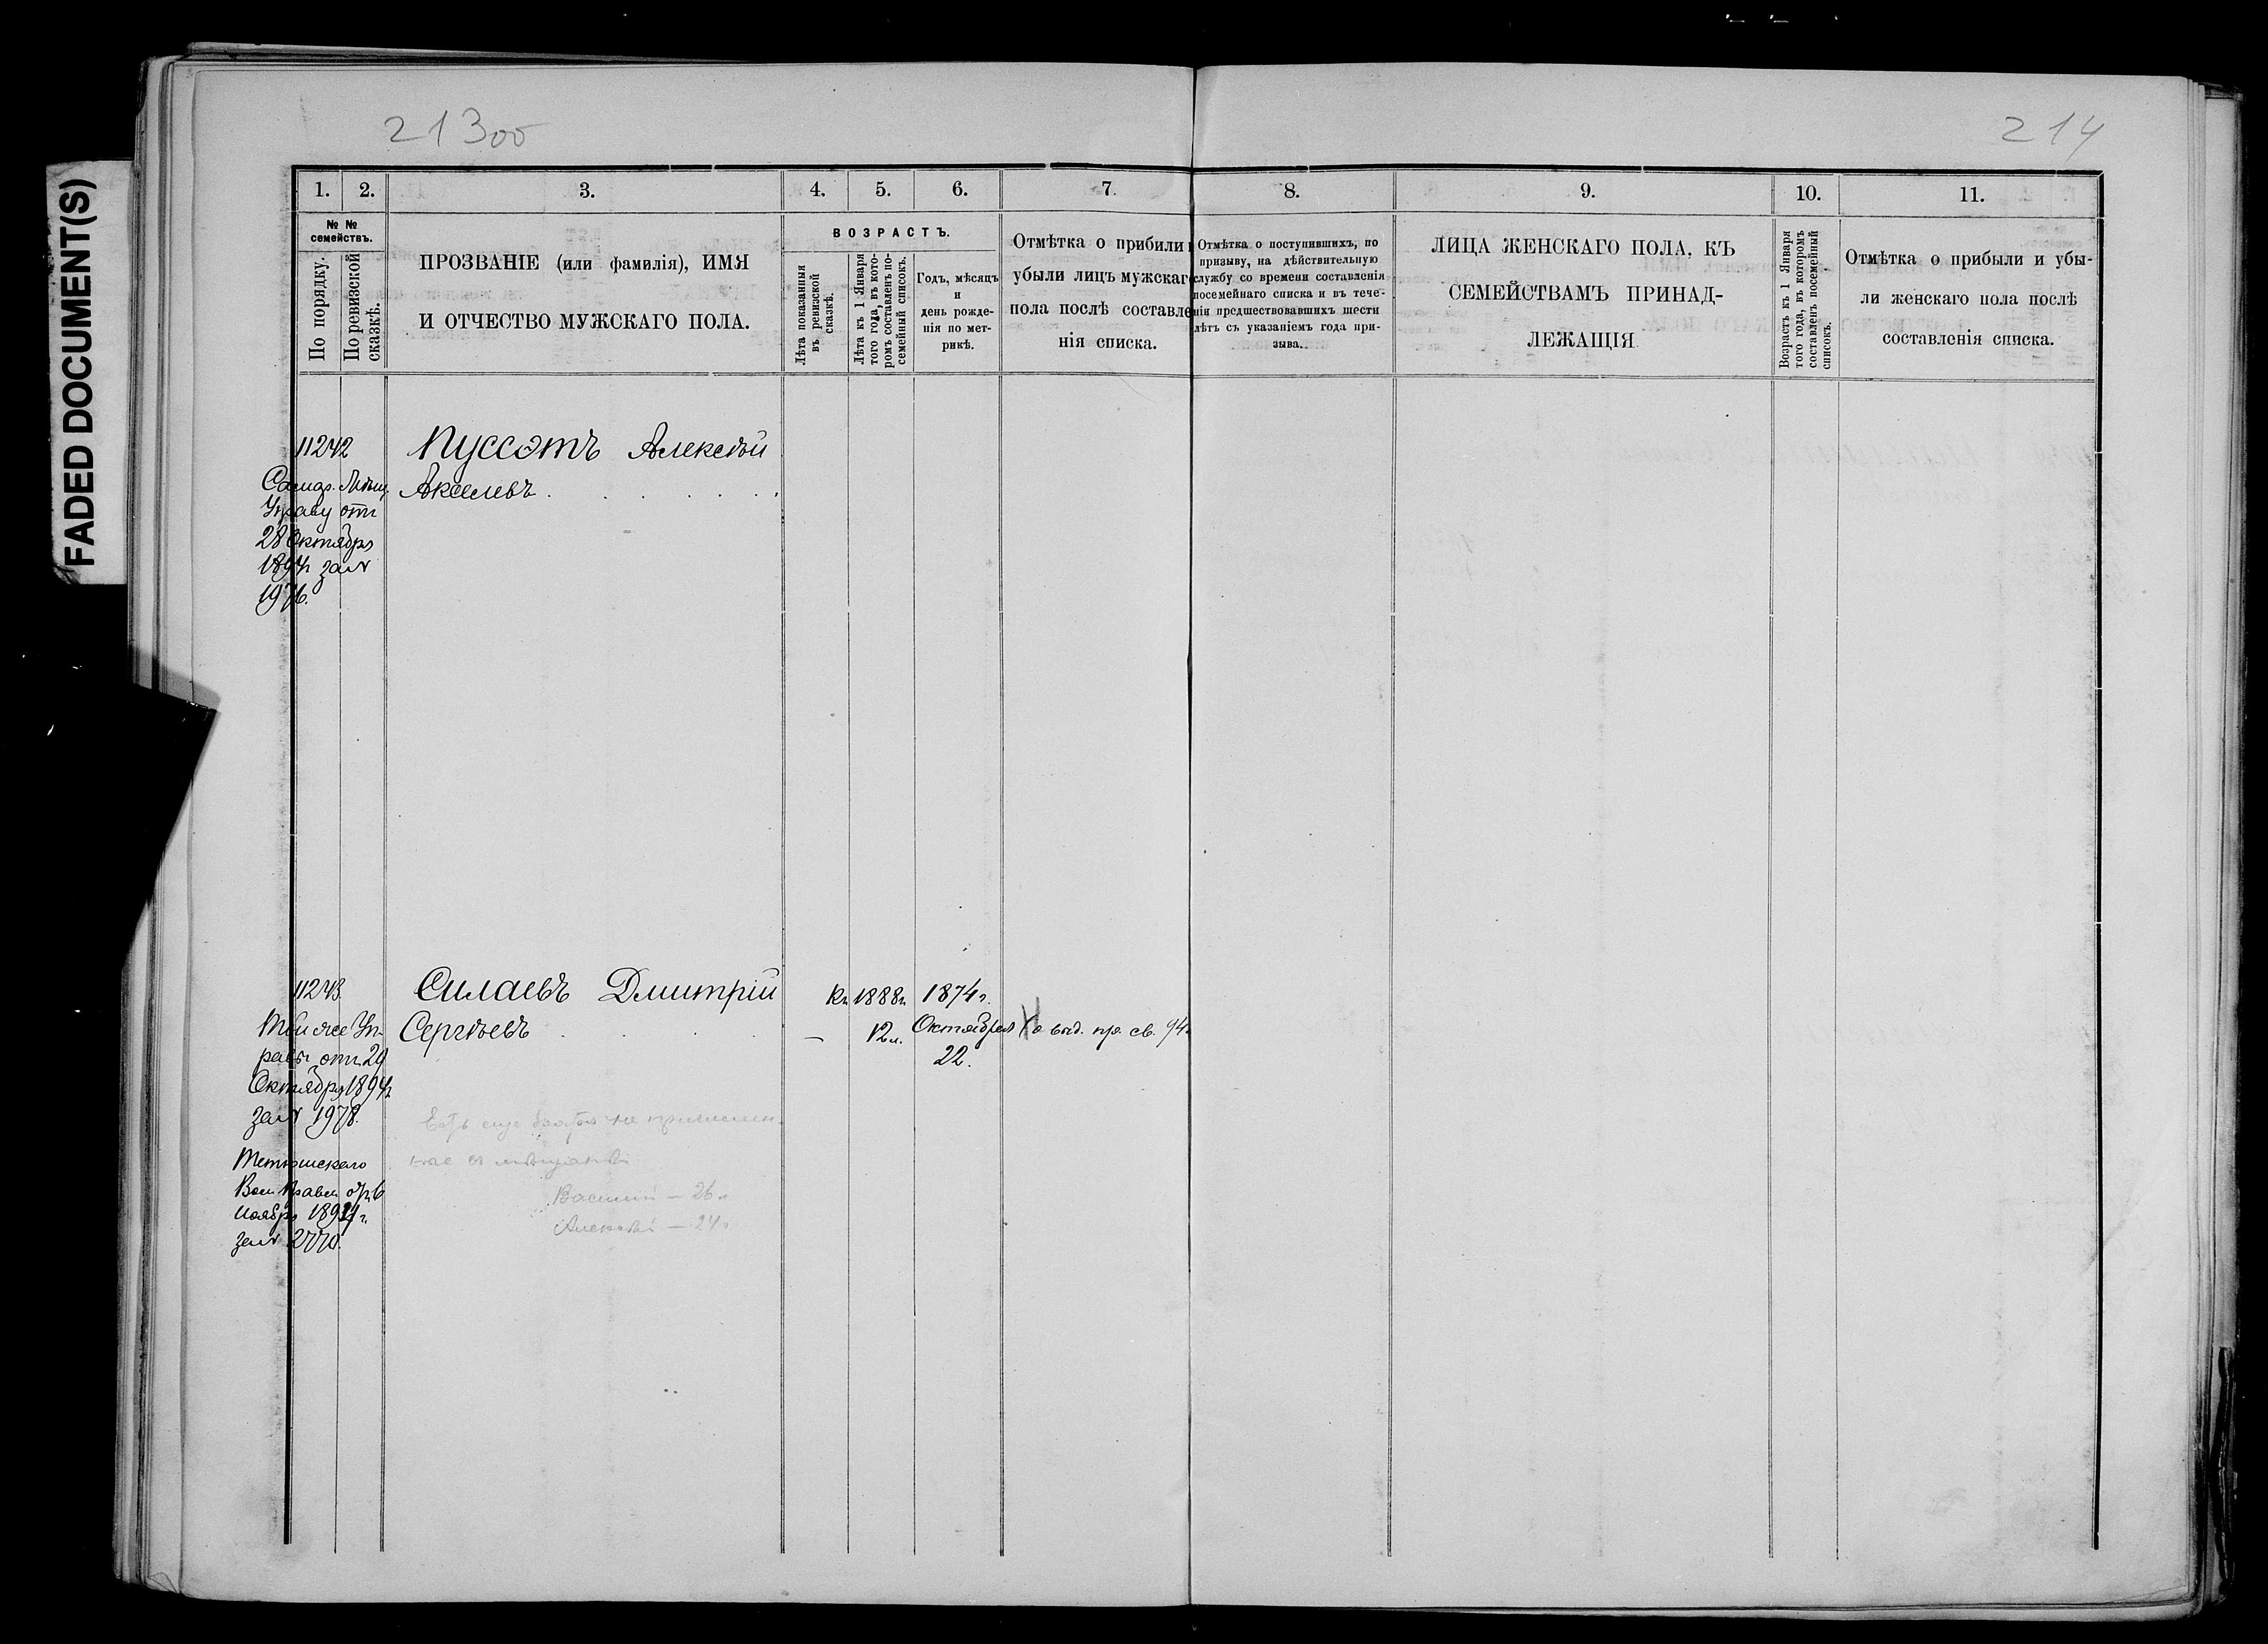 FADED DOCUMENT(S)
213об
214
1.
2.
3.
4.
5.
6.
7.
8.
9.
10.
11.
№ №
семействъ.
По порядку.
По ревизской
сказкѣ.
ПРОЗВАНІЕ (или фамилія), ИМЯ
И ОТЧЕСТВО МУЖСКАГО ПОЛА.
ВОЗРАСТЪ.
Лѣта показанныя
въ ревизской
сказкѣ.
Лѣта къ 1 Января
того года, въ кото-
ромъ составленъ по-
семейный списокъ.
Годъ, мѣсяцъ
и
день рожде-
нія по мет-
рикѣ.
Отмѣтка о прибыли и
убыли лицъ мужскаго
пола послѣ составле-
нія списка.
Отмѣтка о поступившихъ, по
призыву, на дѣйствительную
службу со времени составленія
посемейнаго списка и въ тече-
ніи предшествовавшихъ шести
лѣтъ съ указаніемъ года при-
зыва.
ЛИЦА ЖЕНСКАГО ПОЛА, КЪ
СЕМЕЙСТВАМЪ ПРИНАД-
ЛЕЖАЩІЯ
Возрастъ къ 1 Января
того года, въ которомъ
составленъ посемейный
списокъ.
Отмѣтка о прибыли и убы-
ли женскаго пола послѣ
составленія списка.
11242
Пуссэтъ Алексѣй
Самар. Мѣщ.
Акселевъ
Управу отъ
28 Октября
1894г за №
1976.
11243
Силаевъ Дмитрій
1888г.
1874г.
Той же Уп-
Сергѣевъ
—
12 л.
Октября
о выд. пр. св. 94г
равы отъ 29
22.
Октября 1894г
за № 1978.
Есть еще братья не причислен-
ные въ мѣщане
Тетюшскаго
Вол. Правл. отъ 6
Василій — 26 л
Ноября 1894г.
Алексѣй — 24 л
за №